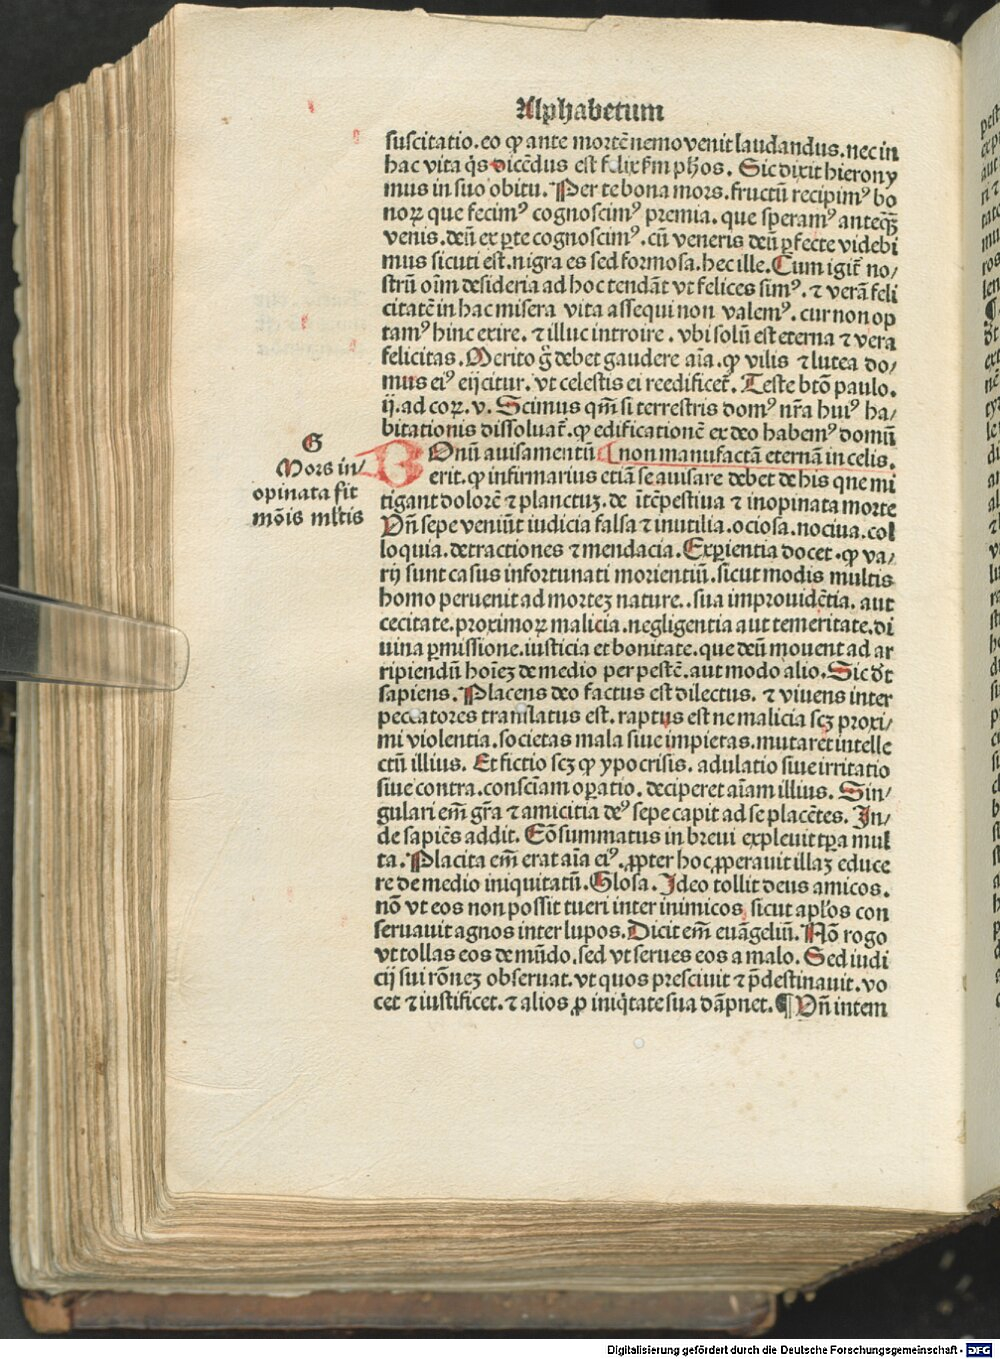 Alphabetum
suscitatio. eo ꝙ ante mortē nemo venit laudandus. nec in
hac vita q̄s dicēdus est felix ẜm pħos. Sic dixit hierony
mus in suo obitu. Per te bona mors. fructū recipimꝰ bo
noꝝ que fecimꝰ cognoscimꝰ premia. que speramꝰ anteqꝫ
venis. deū ex ꝑte cognoscimꝰ. cū veneris deū ꝑfecte videbi
mus sicuti est. nigra es sed formosa. hec ille. Cum igit̄ no/
strū oīm desideria ad hoc tendāt vt felices simꝰ. ⁊ verā feli
citatē in hac misera vita assequi non valemꝰ. cur non op
tamꝰ hinc exire. ⁊ illuc introire. vbi solū est eterna ⁊ vera
felicitas. Merito g̊ debet gaudere aīa. ꝙ vilis ⁊ lutea do/
mus eiꝰ eijcitur. vt celestis ei reedificet̄. Teste btō paulo.
ij. ad coꝝ. v. Scimus qm̄ si terrestris domꝰ nr̄a huiꝰ ha/
bitationis dissoluat̄. ꝙ edificationē ex deo habemꝰ domū
G
Mors in/
opinata fit
mōis ml̄tis
BOnū auisamentū non manufactā eternā in celis.
erit. ꝙ infirmarius etiā se auisare debet de his que mi
tigant dolorē ⁊ planctuꝫ. de ītēpestiua ⁊ inopinata morte
Vn̄ sepe veniūt iudicia falsa ⁊ inutilia. ociosa. nociua. col
loquia. detractiones ⁊ mendacia. Experientia docet. ꝙ va/
rij sunt casus infortunati morientiū. sicut modis multis
homo peruenit ad morteꝫ nature.. sua improuidētia. aut
cecitate. proximoꝝ malicia. negligentia aut temeritate. di
uina ꝑmissione. iusticia et bonitate. que deū mouent ad ar
ripiendū hoīeꝫ de medio per pestē. aut modo alio. Sic dr̄t
sapiens. Placens deo factus est dilectus. ⁊ viuens inter
peccatores translatus est. raptus est ne malicia scꝫ proxi/
mi violentia. societas mala siue impietas. mutaret intelle
ctū illius. Et fictio scꝫ ꝙ ypocrisis. adulatio siue irritatio
siue contra. consciam oꝑatio. deciperet aīam illius. Sin/
gulari em̄ gr̄a ⁊ amicitia deꝰ sepe capit ad se placētes. In/
de sapiēs addit. Cōsummatus in breui expleuit tꝑa mul
ta. Placita em̄ erat aīa eiꝰ. ꝓpter hoc ꝓperauit illaꝫ educe
re de medio iniquitatū. Glosa. Ideo tollit deus amicos.
nō vt eos non possit tueri inter inimicos sicut apl̄os con
seruauit agnos inter lupos. Dicit em̄ euāgeliū. Nō rogo
vt tollas eos de mūdo. sed vt serues eos a malo. Sed iudi
cij sui rōneꝫ obseruat. vt quos presciuit ⁊ p̄destinauit. vo
cet ⁊ iustificet. ⁊ alios ꝓ iniq̄tate sua dāpnet. ¶ Vn̄ intem
Digitalisierung gefördert durch die Deutsche Forschungsgemeinschaft - DFG